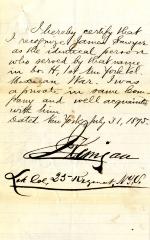 I hereby certify that
I recognize James Sawyer
as the identical person
who served by that name
in Co. H, 1st New York Vol
Mexican War. I was
a private in same Com-
pany and well acquainted
with him
Dated New York July 31, 1895.
Lt. Col, 25 Regiment, N.Y.